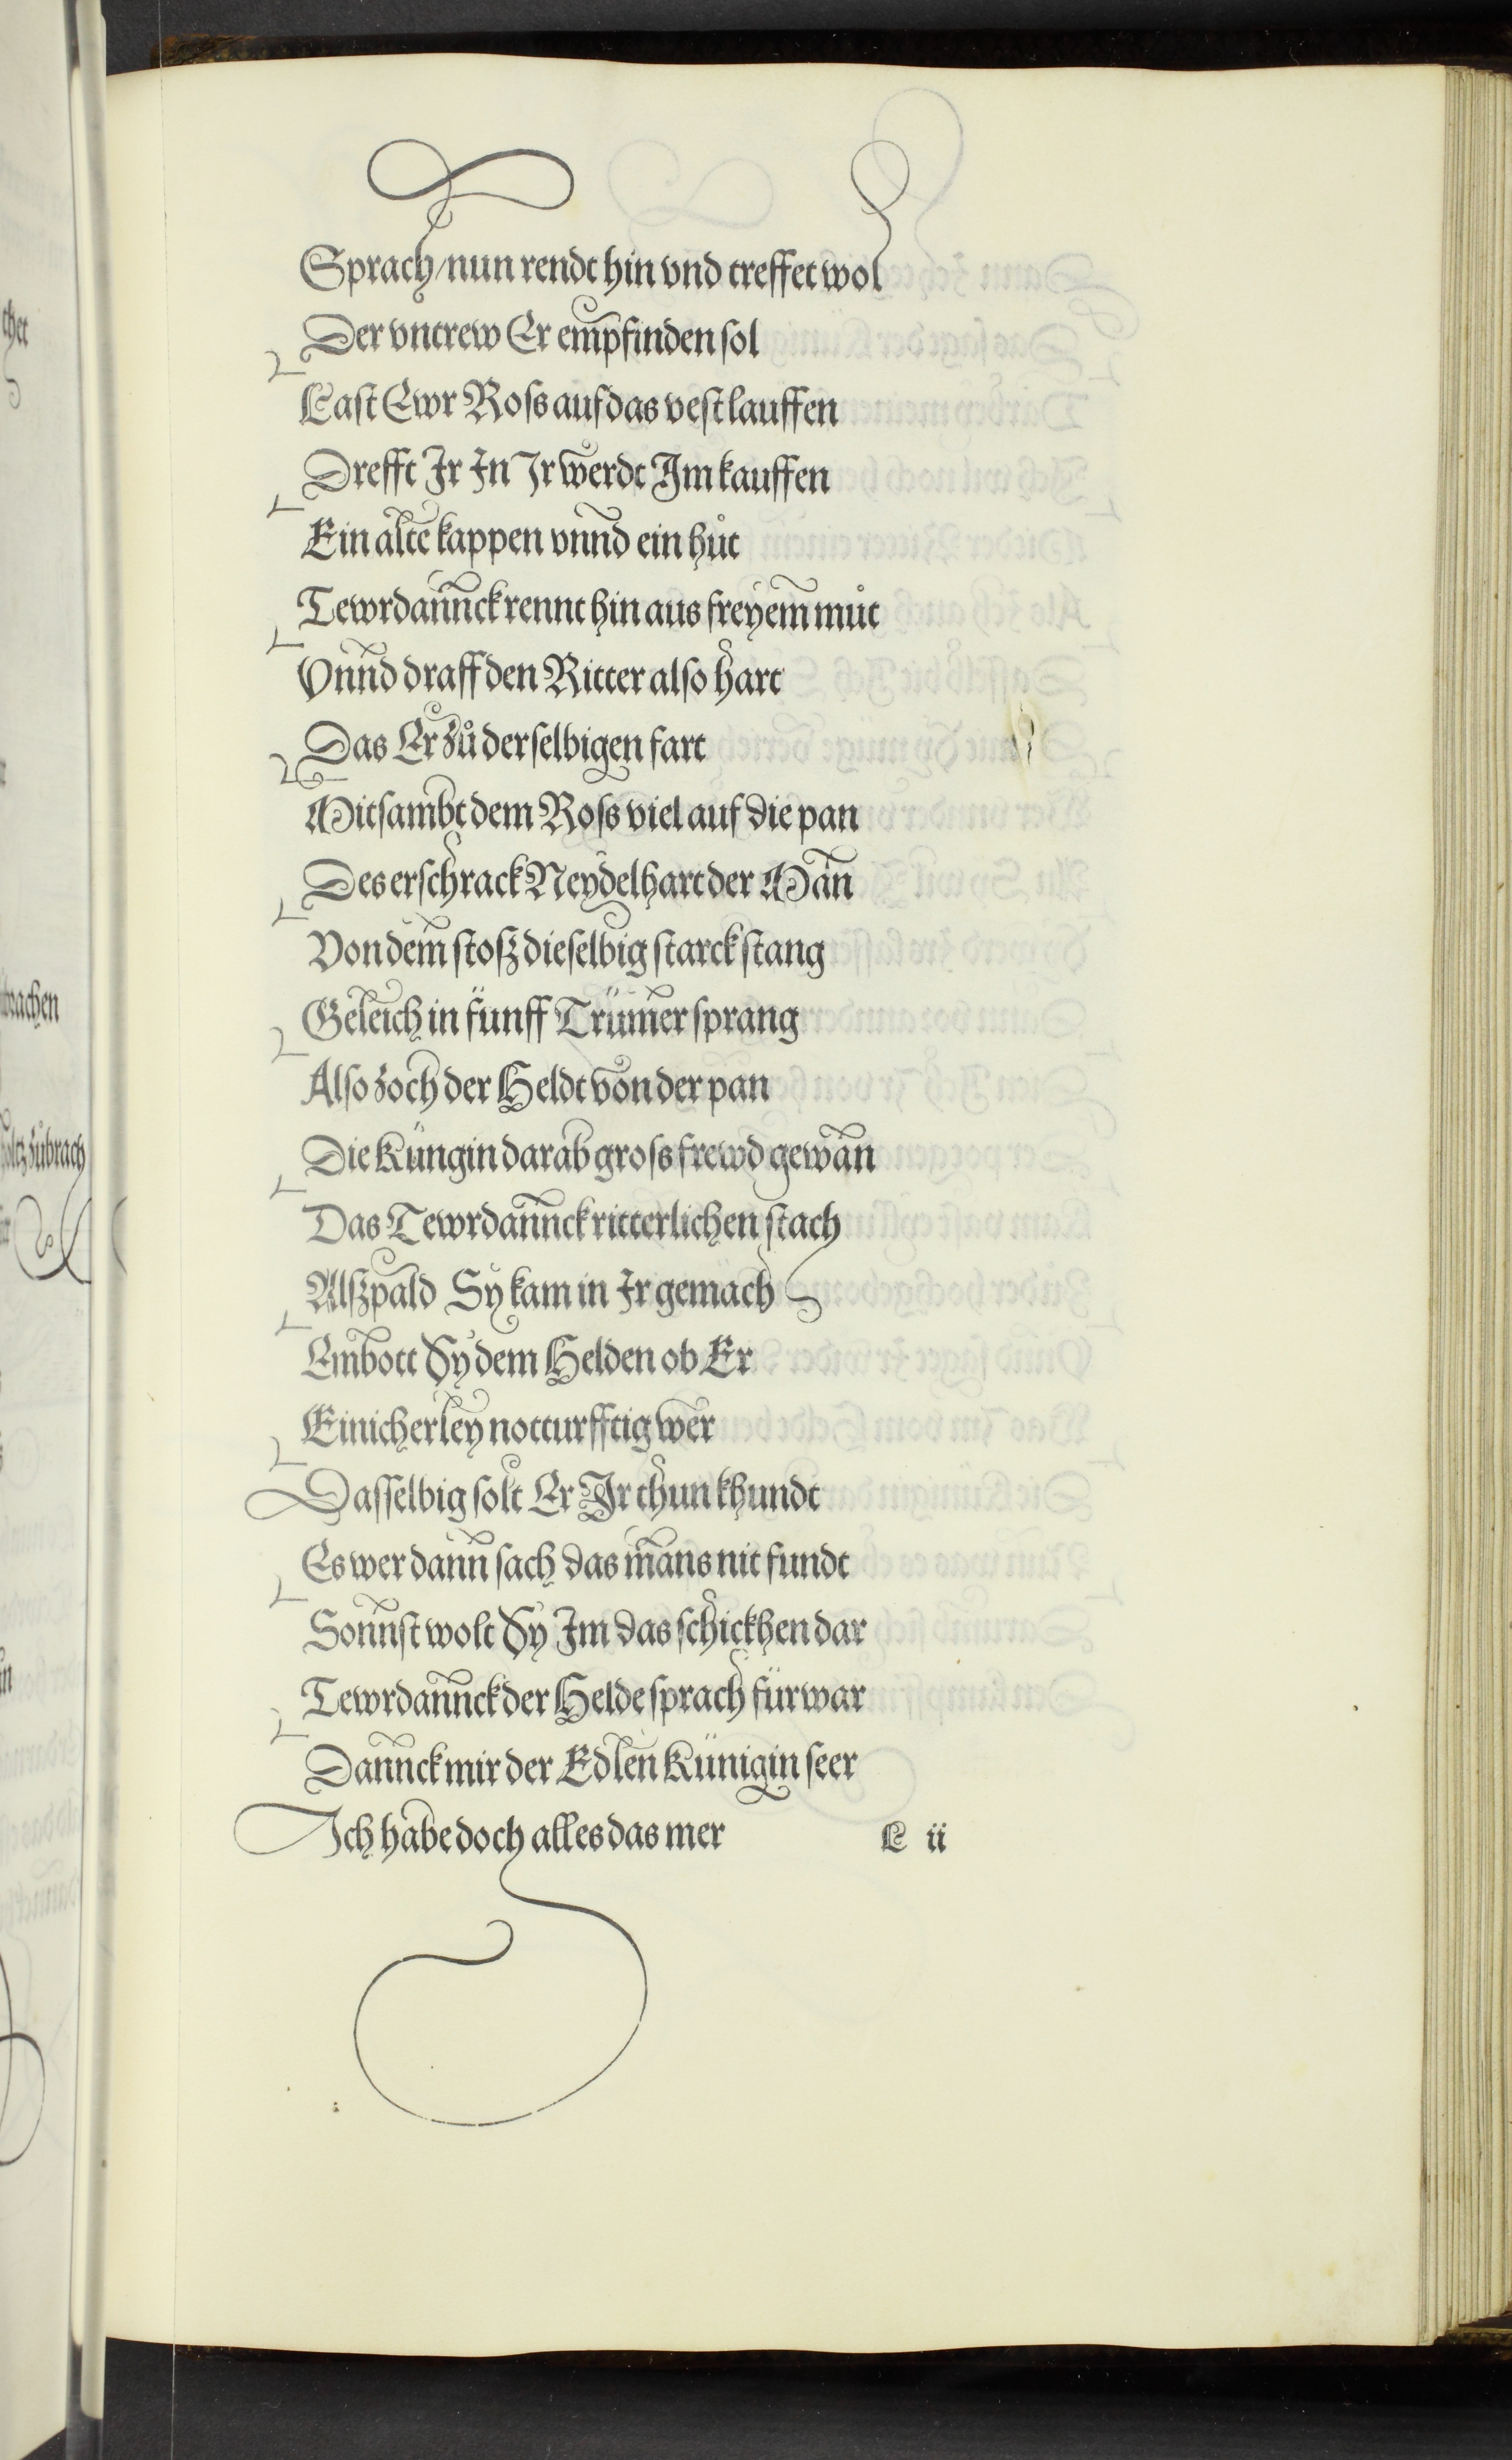 Sprach/nun rendt hin vnd treffet wol
Der vntrew Er empfinden sol
Last Ewr Ross auf das vest lauffen
Drefft Ir In Ir werdt Im kauffen
Ein alte kappen vnnd ein hůt
Tewrdannck rennt hin aus freyem můt
Vnnd draff den Ritter also hart
Das Er zů derselbigen fart
Mitsambt dem Ross viel auf die pan
Des erschrack Neydelhart der Man
Von dem stosz dieselbig starck stang
Geleich in fünff Trümer sprang
Also zoch der Heldt von der pan
Die Küngin darab gross frewd gewan
Das Tewrdannck ritterlichen stach
Alszpald Sy kam in Ir gemach
Embott Sy dem Helden ob Er
Einicherley notturfftig wer
Dasselbig solt Er Ir thun khundt
Es wer dann sach das mans nit fundt
Sonnst wolt Sy Im das schickhen dar
Tewrdannck der Helde sprach fürwar
Dannck mir der Edlen Künigin seer
Ich habe doch alles das mer
L ii